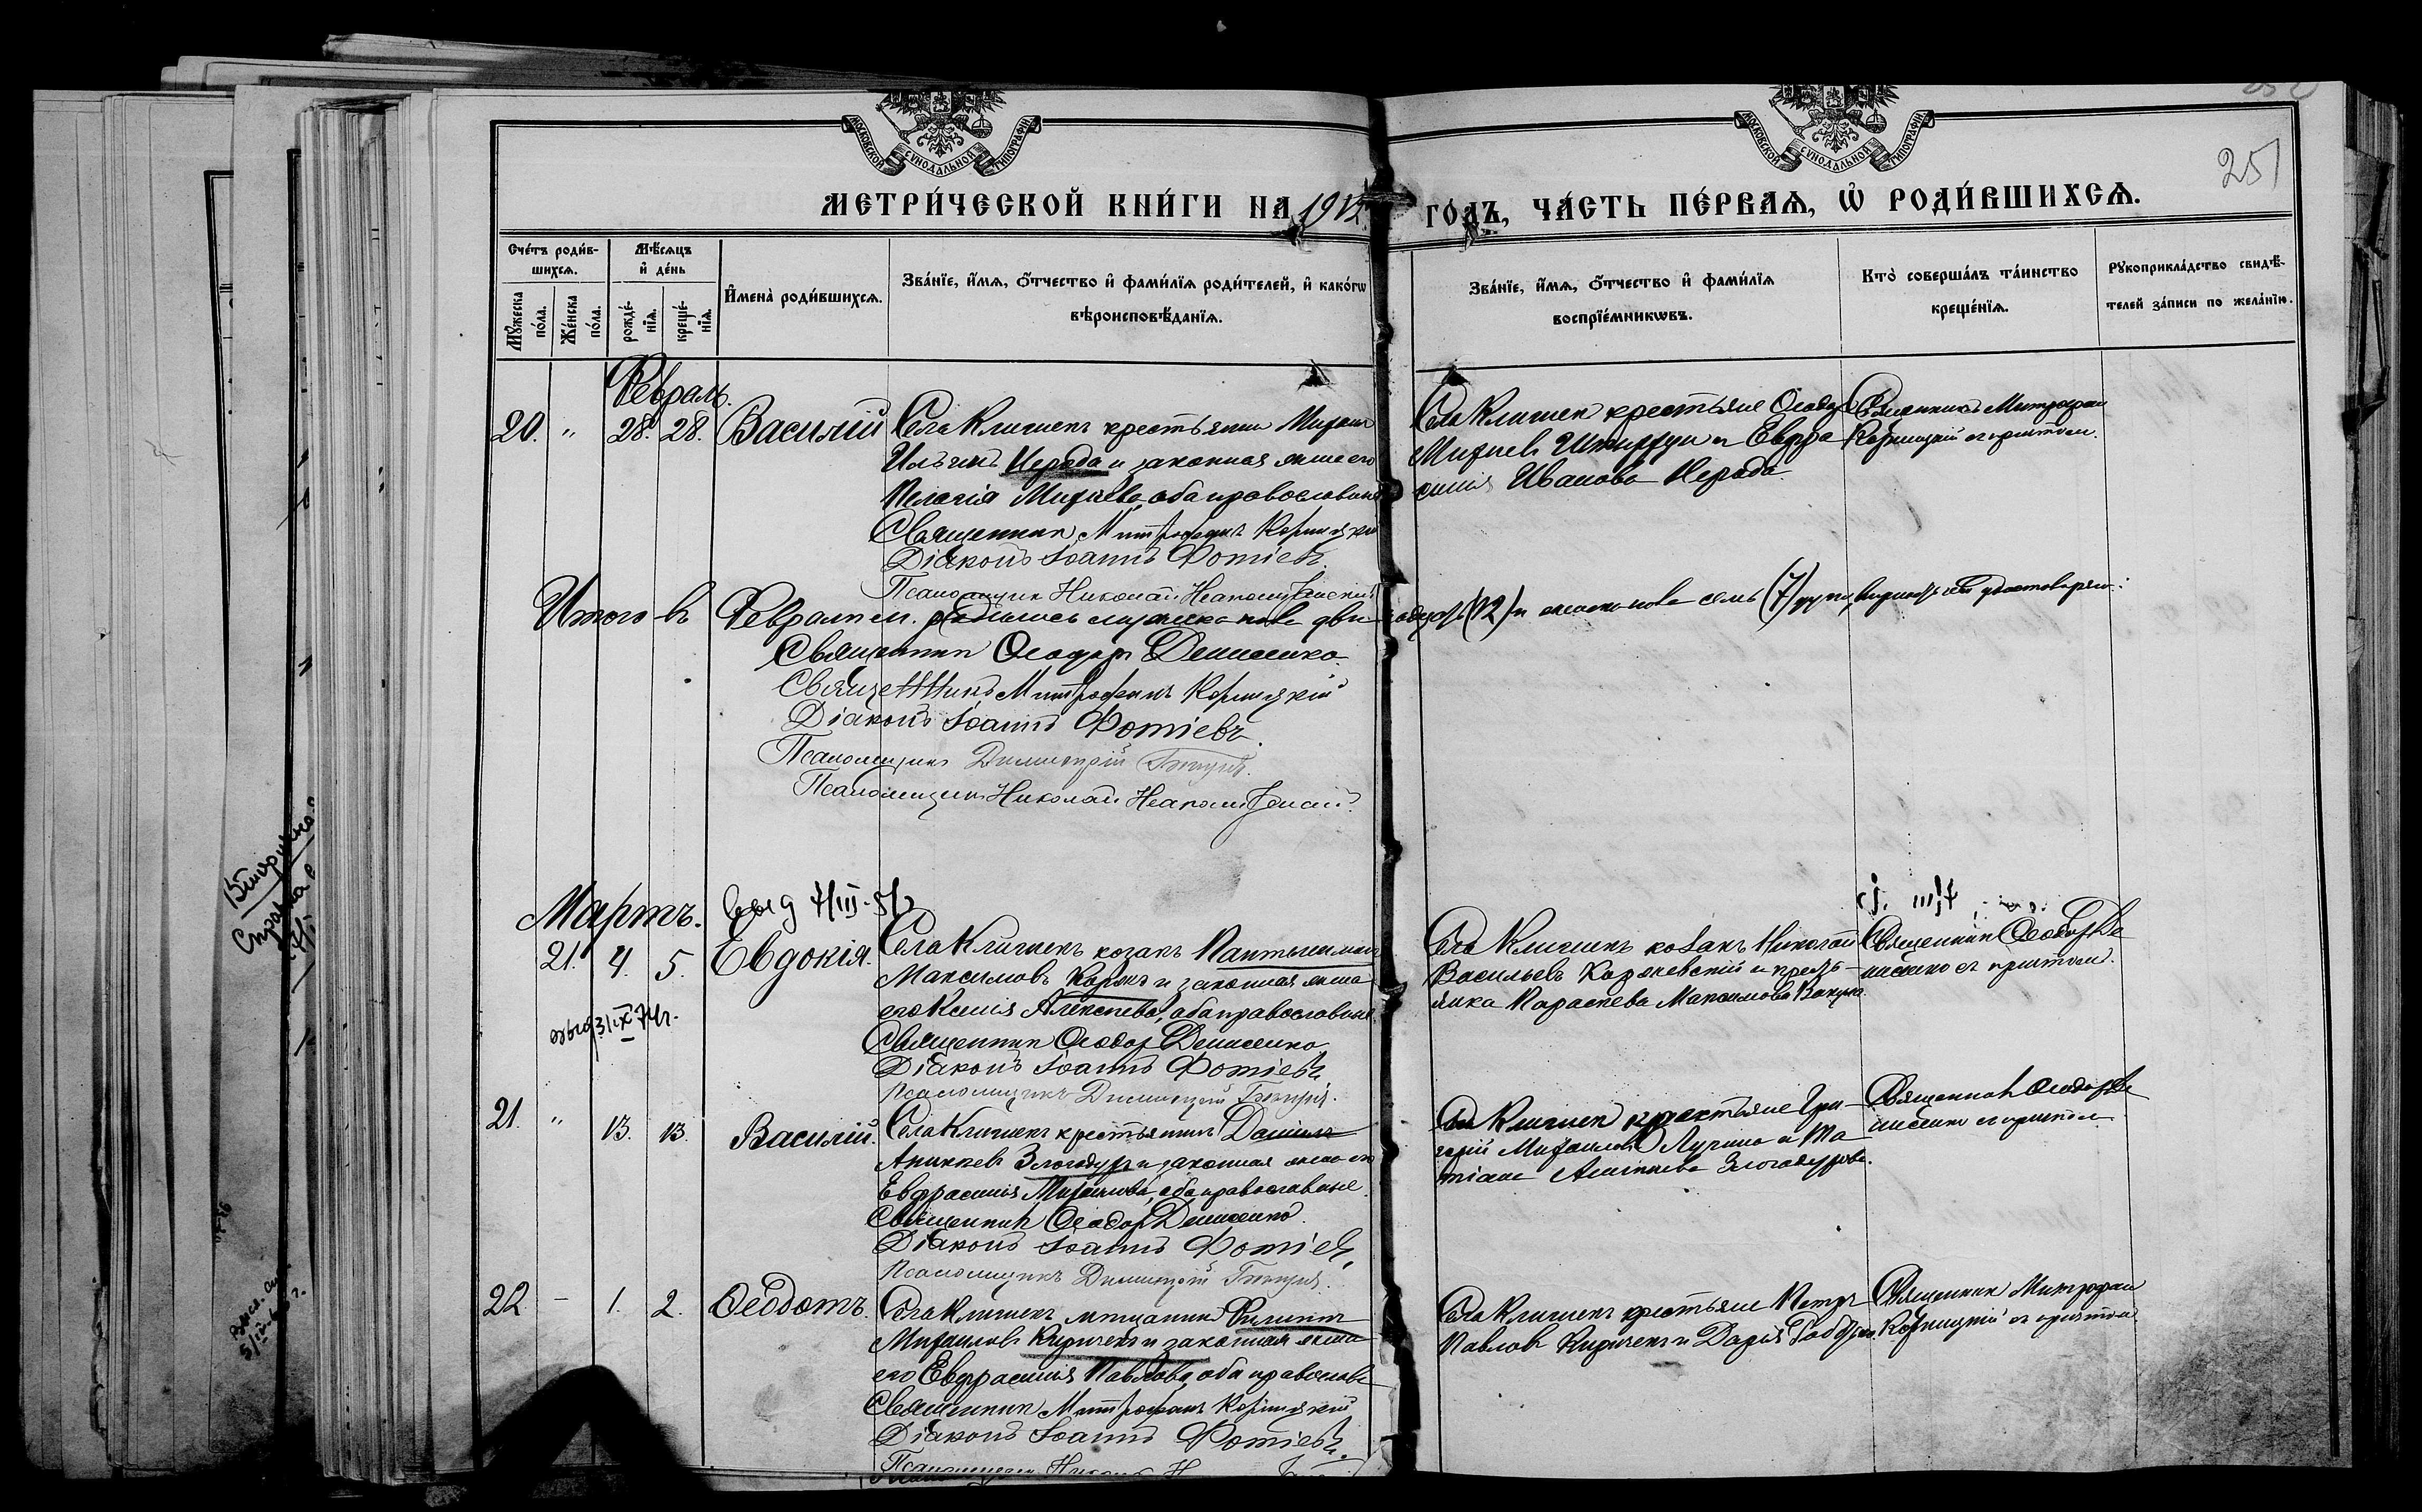 МОСКОВСКОЙ СѴНОДАЛЬНОЙ ТИПОГРАФІИ
МОСКОВСКОЙ СѴНОДАЛЬНОЙ ТИПОГРАФІИ
251
МЕТРИ́ЧЕСКОЙ КНИ́ГИ НА 1912 ГО́ДЪ, ЧА́СТЬ ПЕ́РВАѦ, Ѡ҆ РОДИ́ВШИХСѦ.
Сче́тъ роди́в-
шихсѧ.
Мꙋ́жеска по́ла.
Же́нска по́ла.
Мѣ́сѧцъ
и҆ де́нь
рожде́-
нїѧ.
креще́-
нїѧ.
И҆мена̀ роди́вшихсѧ.
Зва́нїе, и҆́мѧ, ѻ҆́тчество и҆ фами́лїѧ роди́телей, и҆ како́гѡ
вѣроисповѣ́данїѧ.
Зва́нїе, и҆́мѧ, ѻ҆́тчество и҆ фами́лїѧ
воспрїе́мникѡвъ.
Кто̀ соверша́лъ та́инство
креще́нїѧ.
Рꙋкоприкла́дство свидѣ́-
телей за́писи по жела́нїю.
Февраль.
20. " 28. 28. Василій
Села Клишекъ крестьянинъ Михаилъ
Ильинъ Нерода и законная жена его
Пелагія Михаиловна, оба православные
Священникъ Митрофанъ Корницкій
Діаконъ Іоаннъ Фотіевъ
Псаломщикъ Николай Неаполитанскій
Села Клишек крестьяне Ѳеодоръ
Михаилов и Евфро-
синія Иванова Нерода.
Священникъ Митрофан
Корницкій съ причтом.
Итого въ Февралѣ м. родилось мужеска пола двѣнадцать (12) и женска пола семь (7) душ, вѣрность сего удостовѣряем:
Священникъ Ѳеодоръ Денисенко.
Священникъ Митрофанъ Корницкій
Діаконъ Іоаннъ Фотіевъ.
Псаломщикъ Димитрій
Псаломщикъ Николай Неаполитанскій
Мартъ.
21. 4. 5. Евдокія.
Села Клишекъ козакъ Пантелеимонъ
Максимовъ Коржъ и законная жена
его Ксенія Алексѣева, оба православные
Священникъ Ѳеодоръ Денисенко
Діаконъ Іоаннъ Фотіевъ
Псаломщикъ Димитрій
Села Клишекъ козакъ Николай
Васильевъ Коржевскій и кресть-
янка Параскева Максимова
Священникъ Ѳеодоръ Де
нисенко съ причтом.
21. " 13. 13. Василій.
Села Клишекъ крестьянинъ Даниилъ
Аникіевъ Злогодухъ и законная жена его
Евфросинія Михаилова, оба православные.
Священникъ Ѳеодоръ Денисенко.
Діаконъ Іоаннъ Фотіевъ
Псаломщикъ Димитрій
Села Клишек крестьяне Гри-
горій Михаиловъ и Та-
тіана
Священникъ Ѳеодоръ Де
нисенко съ причтом
22 - 1. 2. Ѳеодотъ.
Села Клишекъ мѣщанинъ Филиппъ
Михаиловъ Киричекъ и законная жена
его Евфросинія Павлова, оба православ.
Священникъ Митрофанъ Корницкій
Діаконъ Іоаннъ Фотіевъ.
Псаломщикъ
Села Клишекъ крестьяне Петръ
Павловъ Киричекъ и Дарія
Священникъ Митрофан
Корницкій съ причтом